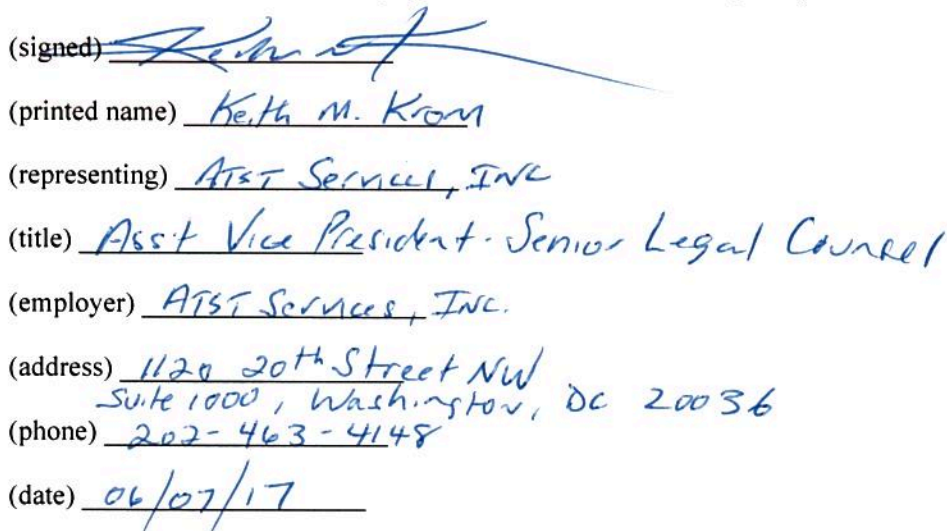 (signed) Keith
(printed name) Keith M. Krom
(representing) AT&T Services, INC
(title) Ass't Vice President - Senior Legal Counsel
(employer) AT&T Services, INC.
(address) 1120 20th Street NW
Suite 1000, Washington, DC 20036
(phone) 202-463-4148
(date) 06/07/17